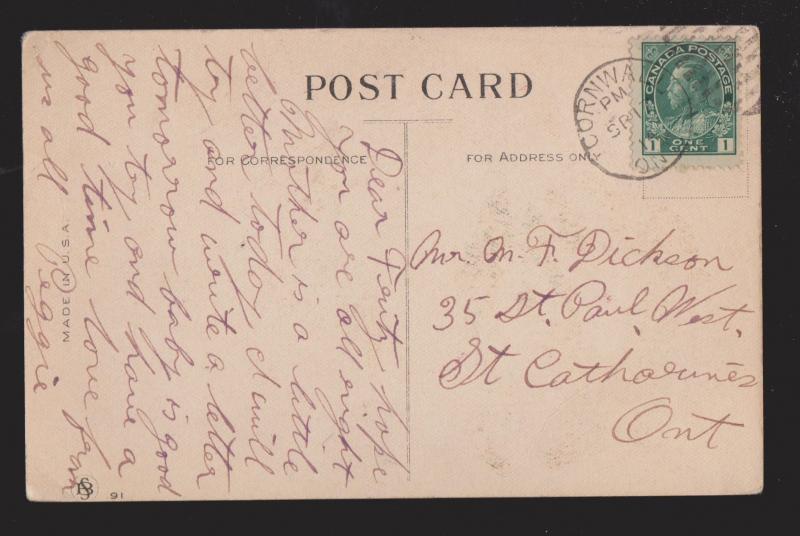 POST CARD
FOR CORRESPONDENCE
FOR ADDRESS ONLY
CANADA POSTAGE
1 ONE CENT 1
CORNWALL
PM
SP
ONT
Mr. M. F. Dickson
35 St. Paul West.
St Catharines
Ont
Dear Fritz hope
you are all right
Mother is a little
better today I will
try and write a letter
tomorrow baby is good
you try and have a
good time love from
us all Reggie
MADE IN U.S.A.
SB
91